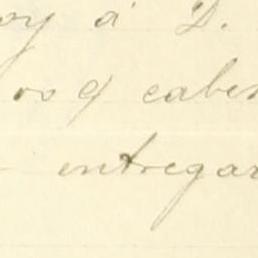 oy á D.
os q caben
entregar